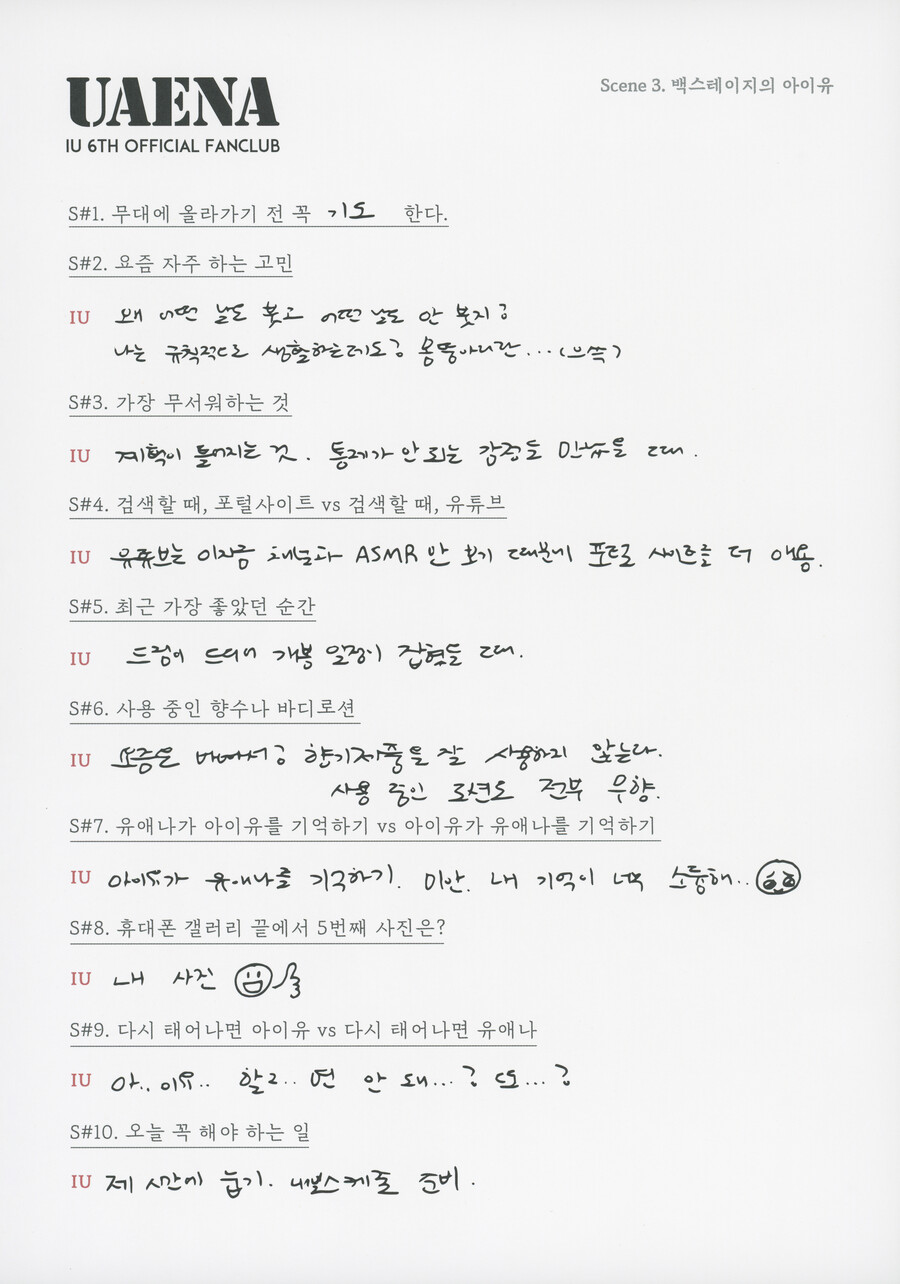 UAENA
IU 6TH OFFICIAL FANCLUB
Scene 3. 백스테이지의 아이유
S#1. 무대에 올라가기 전 꼭 기도 한다.
S#2. 요즘 자주 하는 고민
IU 왜 어떤 날도 붓고 어떤 날도 안 붓지?
나는 규칙적으로 생활하는데도? 몸뚱아리란...(으쓱)
S#3. 가장 무서워하는 것
IU 계획이 틀어지는 것. 통제가 안 되는 감정들 만났을 때.
S#4. 검색할 때, 포털사이트 vs 검색할 때, 유튜브
IU 유튜브는 이지금 채널과 ASMR만 보기 때문에 포털 사이트를 더 애용.
S#5. 최근 가장 좋았던 순간
IU 드림이 드디어 개봉 일정이 잡혔을 때.
S#6. 사용 중인 향수나 바디로션
IU 요즘은 바빠서? 향기제품을 잘 사용하지 않는다.
사용 중인 로션도 전부 무향.
S#7. 유애나가 아이유를 기억하기 vs 아이유가 유애나를 기억하기
IU 아이유가 유애나를 기억하기. 미안. 내 기억이 너무 소듕해..
S#8. 휴대폰 갤러리 끝에서 5번째 사진은?
IU 내 사진
S#9. 다시 태어나면 아이유 vs 다시 태어나면 유애나
IU 아.. 이유.. 할ㄹ.. 면 안 돼...? 또...?
S#10. 오늘 꼭 해야 하는 일
IU 제 시간에 눕기. 내일스케줄 준비.